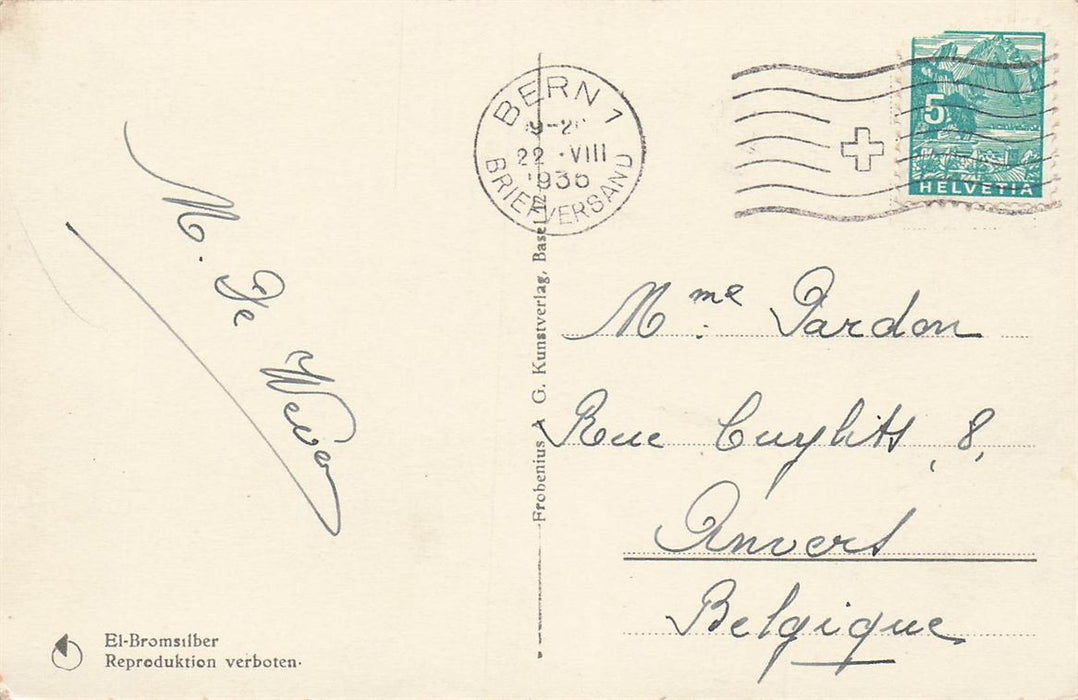 BERN 1
22 · VIII
1936
BRIEFVERSAND
5
HELVETIA
M. De Wever
Frobenius A G. Kunstverlag, Basel
Mme Pardon
Rue Cuylits, 8,
Anvers
Belgique
El-Bromsilber
Reproduktion verboten.